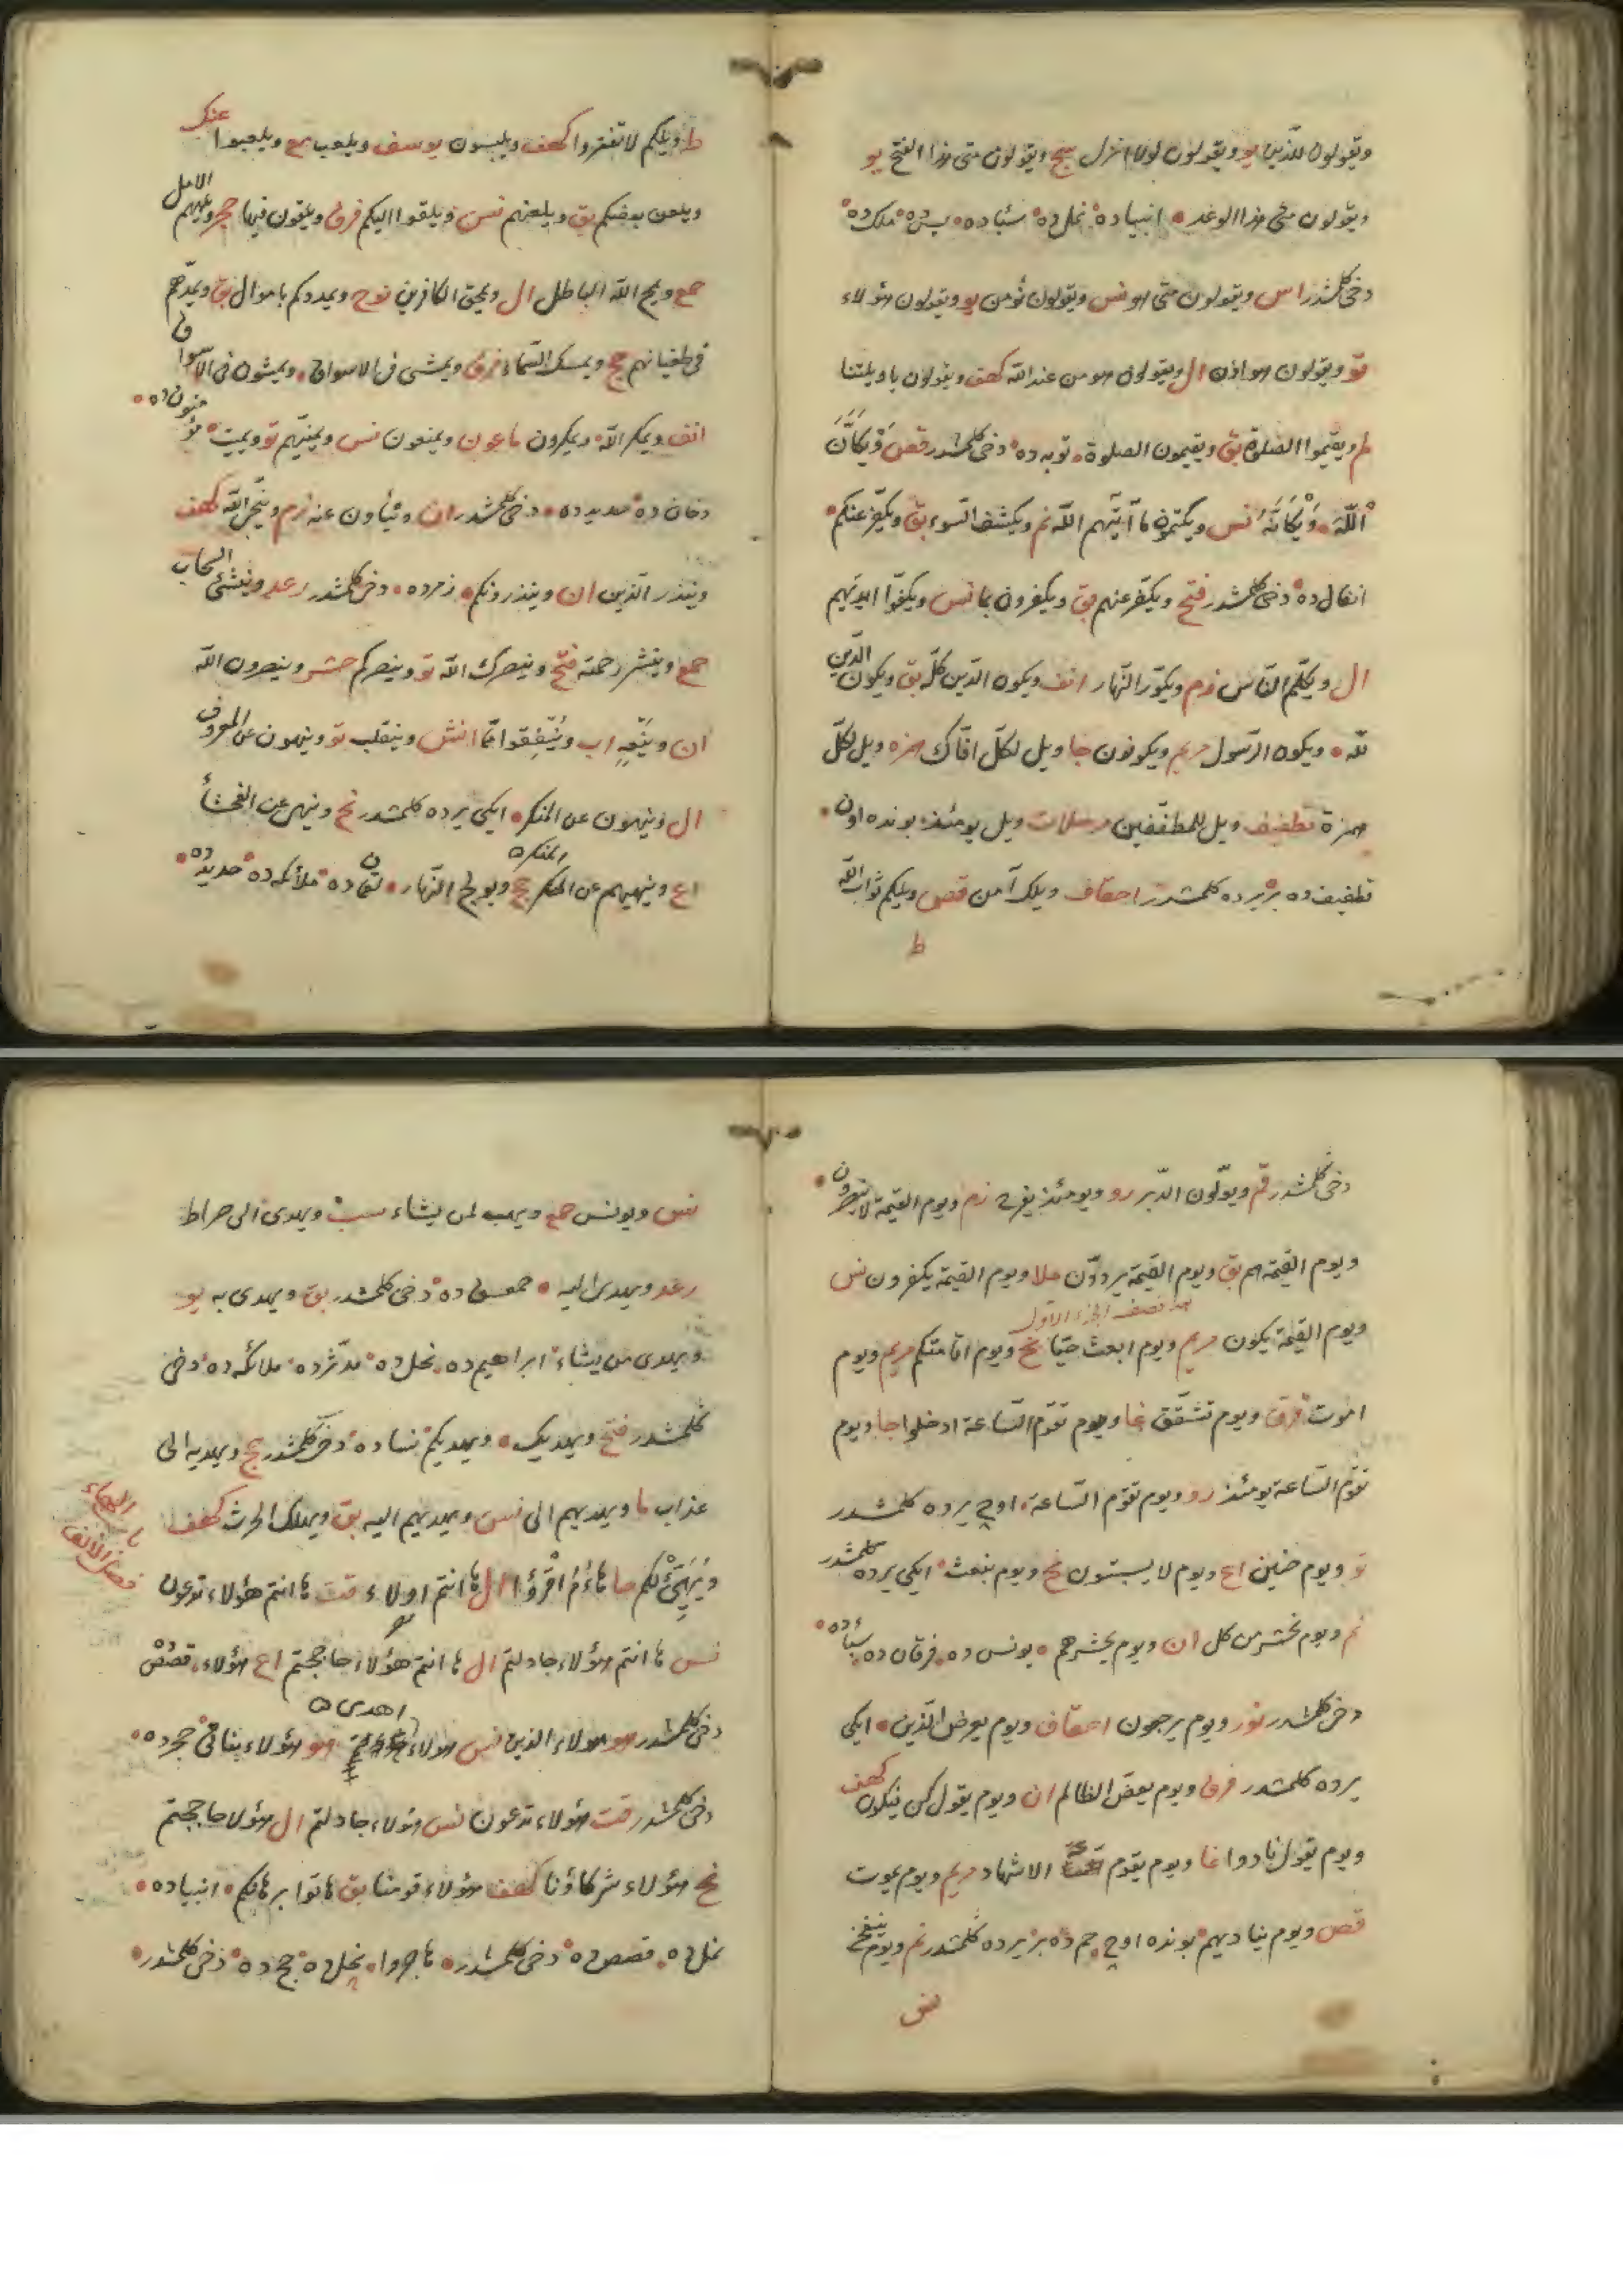 ويقولون للذين يو ويقولون لولا انزل سج ويقولون متى هذا الفتح يو
ويقولون متى هذا الوعد انبياده نمل ده سبأده يس ده ملك ده
دخى كلمشدر اس ويقولون متى هو نس ويقولون نؤمن يو ويقولون هؤلاء
تو ويقولون هو اذن ال ويقولون هو من عند الله كهف ويقولون ياويلتنا
لم ويقيموا الصلوة بق ويقيمون الصلوة توبه ده دخى كلمشدر قصص وَيْكَأَنَّ
اللّٰهَ وَيْكَأَنَّهُ نس ويكتمون ما آتيهم الله نم ويكشف السوء بق ويكفر عنكم
انفال ده دخى كلمشدر فتح ويكفر عنهم بق ويكفرون بما نس ويكفّوا ايديهم
ال ويكلم الناس زم ويكوّر النهار انف ويكون الدين كله بق ويكون الدين
لله ويكون الرسول مريم ويكونون جا ويل لكل افاك همزه ويل لكل
همزة تطفيف ويل للمطففين مرسلات ويل يومئذ بونده اون
تطفيف ده بر يرده كلمشدر احقاف ويلك آمن قصص ويلكم ثواب الله
ط
ط ويلكم لا تفتروا كهف ويلبسون يوسف ويلعب مع ويلعبوا عنك
ويلعن بعضكم بق ويلعنهم نس ويلقوا اليكم فرق ويلقون فيها حجر ويلههم الامل
حمع ويمح الله الباطل ال ويمحق الكافرين نوح ويمددكم باموال بق ويمدّهم
فى طغيانهم حج ويمسك السماء فرق ويمشى فى الاسواق ويمشون فى الاسواق
انف ويمكر الله ويمكرون ماعون ويمنعون نس ويمنّيهم تو ويميت مؤمنون ده
دخان ده حديد ده دخى كلمشدر ان وينأون عنه زم وينجّى الله كهف
وينذر الذين ان وينذرونكم زمرده دخى كلمشدر رعد وينشئ السحاب
حمع وينشر رحمته فتح وينصرك الله تو وينصركم حشر وينصرون الله
ان وينعه اب وينفقوا مما انش وينقلب تو وينهون عن المعروف
ال وينهون عن المنكر ايكى يرده كلمشدر نح وينهى عن الفحشأ
اع وينهيهم عن المنكر حج ويولج النهار لقمان ده ملائكه ده حديد ده
دخى كلمشدر قم ويولّون الدبر رو ويومئذ يفرح زم ويوم القيمة لا ينصرون
ويوم القيمة هم بق ويوم القيمة يردون ملا ويوم القيمة يكفرون نس
هذا نصف الجزء الاول
ويوم القيمة يكون مريم ويوم ابعث حيّا نح ويوم اقامتكم مريم ويوم
اموت فرق ويوم تشقق غا ويوم تقوم الساعة ادخلوا جا ويوم
تقوم الساعة يومئذ رو ويوم تقوم الساعة اوچ يرده كلمشدر
تو ويوم حنين اع ويوم لا يسبتون نح ويوم نبعث ايكى يرده كلمشدر
نم ويوم نحشر من كل ان ويوم يحشرهم يونس ده فرقان ده سبأده
دخى كلمشدر نور ويوم يرجعون احقاف ويوم يعرض الذين ايكى
يرده كلمشدر فرق ويوم يعض الظالم ان ويوم يقول كن فيكون كهف
ويوم يقول نادوا غا ويوم يقوم الاشهاد مريم ويوم يموت
قصص ويوم يناديهم بونده اوچ حم ده بر يرده كلمشدر نم ويوم ينفخ
نس
نس ويونس حمع ويهب لمن يشاء سب ويهدى الى صراط
رعد ويهدى اليه حمعسق ده دخى كلمشدر بق ويهدى به يو
ويهدى من يشاء ابراهيم ده نحل ده مدثر ده ملائكه ده دخى
كلمشدر فتح ويهديك ويهديكم نساده دخى كلمشدر حج ويهديه الى
عذاب ما ويهديهم الى نس ويهديهم اليه بق ويهلك الحرث كهف
ها الهاء
فصل الالف
ويهيّئ لكم حا هاؤم اقرؤا ال ها انتم اولاء قت ها انتم هؤلاء تدعون
نس ها انتم هؤلاء جادلتم ال ها انتم هؤلاء حاججتم اع هؤلاء قصص
اهدى
دخى كلمشدر هو هؤلاء الذين نس هؤلاء هو هؤلاء بناتى حجر ده
دخى كلمشدر قت هؤلاء تدعون نس هؤلاء جادلتم ال هؤلا حاججتم
نح هؤلاء شركاؤنا كهف هؤلاء قومنا بق هاتوا برهانكم انبياده
نمل ده قصص ده دخى كلمشدر هاجروا نحل ده حج ده دخى كلمشدر